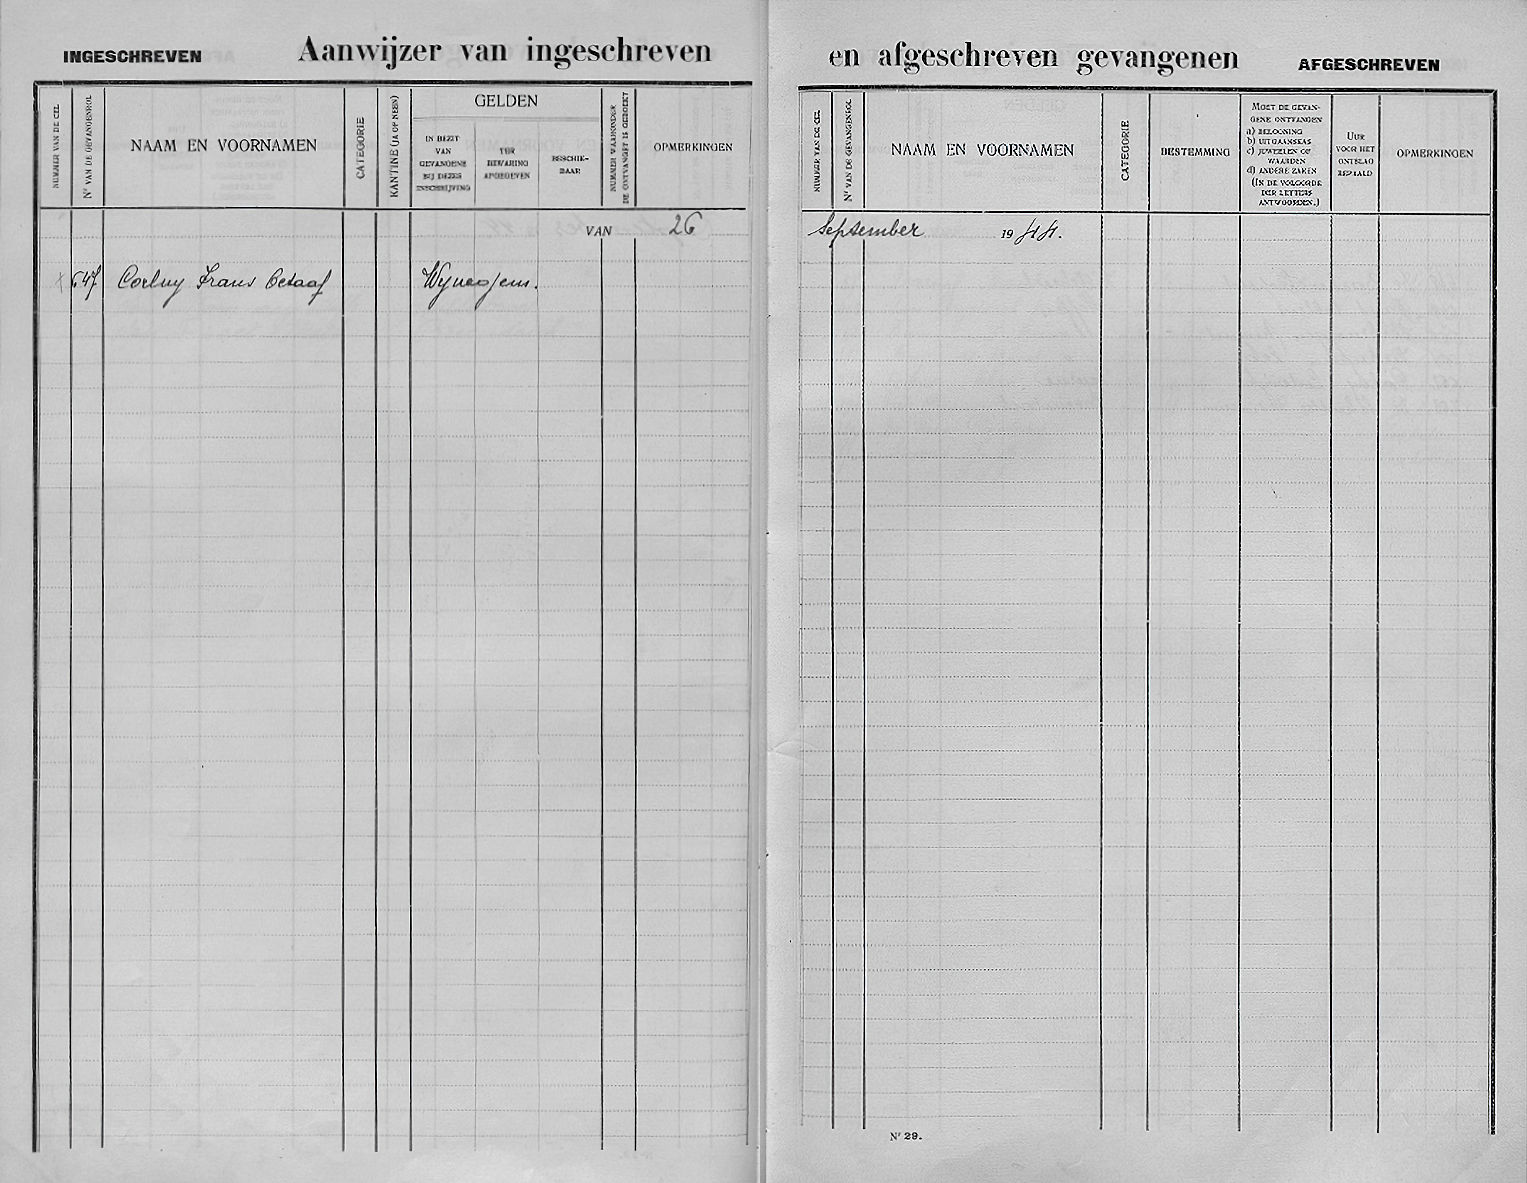 INGESCHREVEN
Aanwijzer van ingeschreven
NUMMER VAN DE CEL
Nr VAN DE GEVANGENROL
NAAM EN VOORNAMEN
CATEGORIE
KANTINE (JA OF NEEN)
GELDEN
IN BEZIT
VAN
GEVANGENE
BIJ DEZES
INSCHRIJVING
TER
BEWARING
AFGEGEVEN
BESCHIK-
BAAR
NUMMER WAARONDER
DE ONTVANGST IS GEBOEKT
OPMERKINGEN
VAN 26
647 Corluy Frans Gustaaf Wynegem.
en afgeschreven gevangenen
AFGESCHREVEN
NUMMER VAN DE CEL
Nr VAN DE GEVANGENROL
NAAM EN VOORNAMEN
CATEGORIE
BESTEMMING
MOET DE GEVAN-
GENE ONTVANGEN
a) BELOONING
b) UITGAANSKAS
c) JUWEELEN OF
WAARDEN
d) ANDERE ZAKEN
(IN DE VOLGORDE
DER LETTERS
ANTWOORDEN.)
UUR
VOOR HET
ONTSLAG
BEPAALD
OPMERKINGEN
September 1944.
Nr 29.